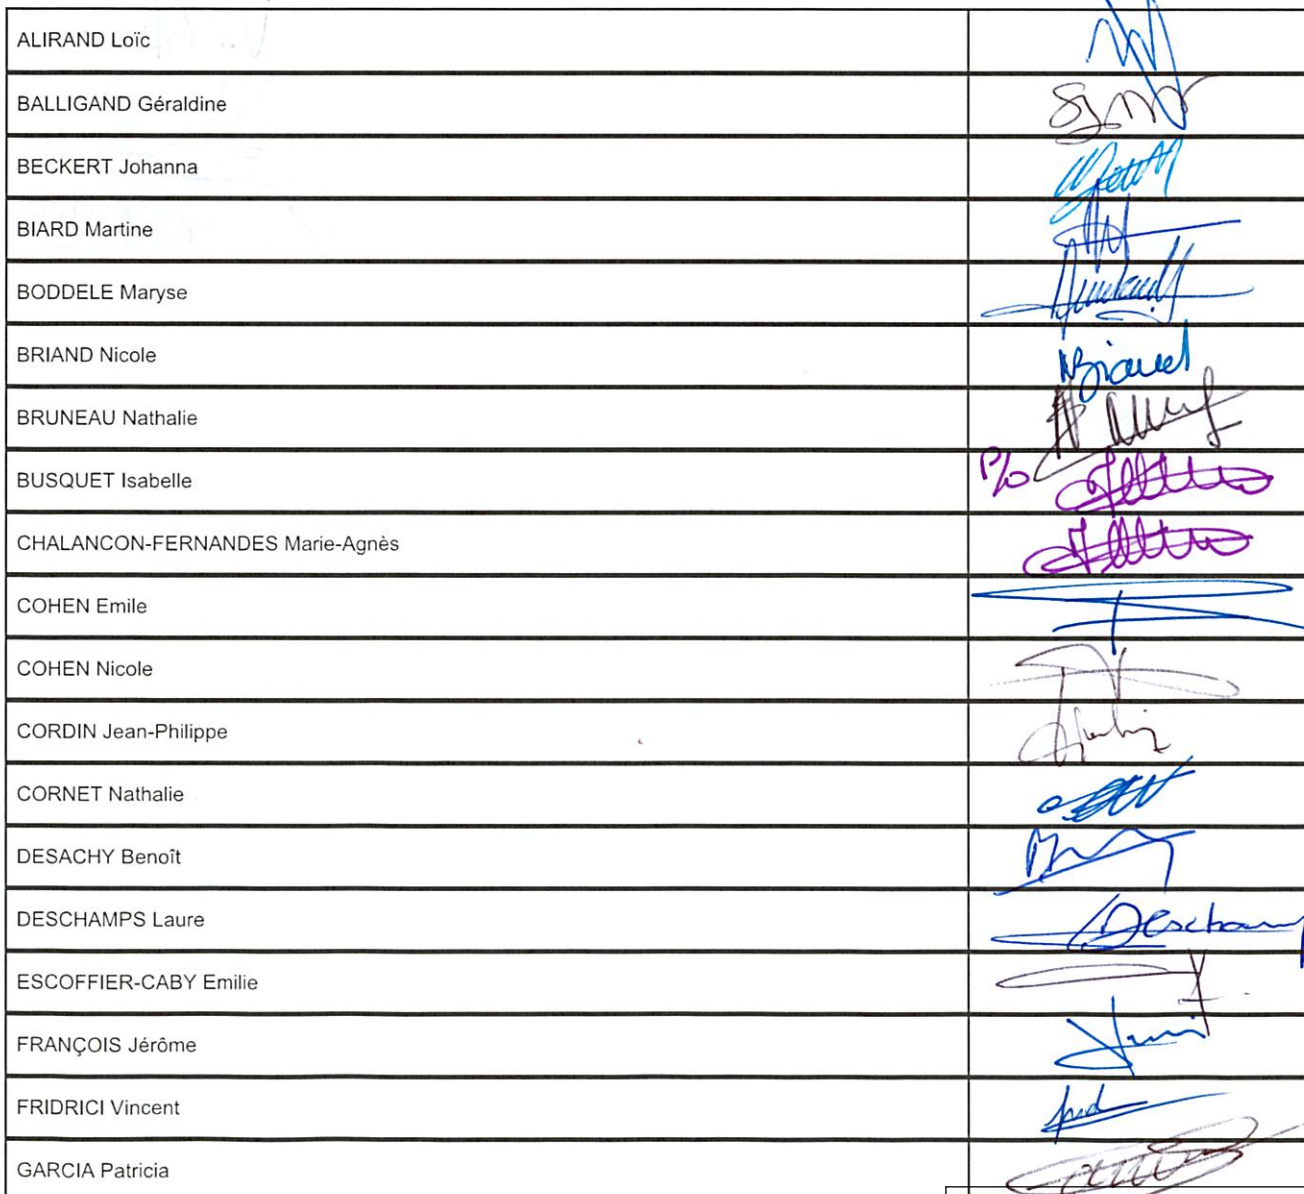 ALIRAND Loïc
BALLIGAND Géraldine
BECKERT Johanna
BIARD Martine
BODDELE Maryse
BRIAND Nicole
NBriand
BRUNEAU Nathalie
BUSQUET Isabelle
P/o
CHALANCON-FERNANDES Marie-Agnès
COHEN Emile
COHEN Nicole
CORDIN Jean-Philippe
CORNET Nathalie
DESACHY Benoît
DESCHAMPS Laure
Deschamp
ESCOFFIER-CABY Emilie
FRANÇOIS Jérôme
FRIDRICI Vincent
GARCIA Patricia